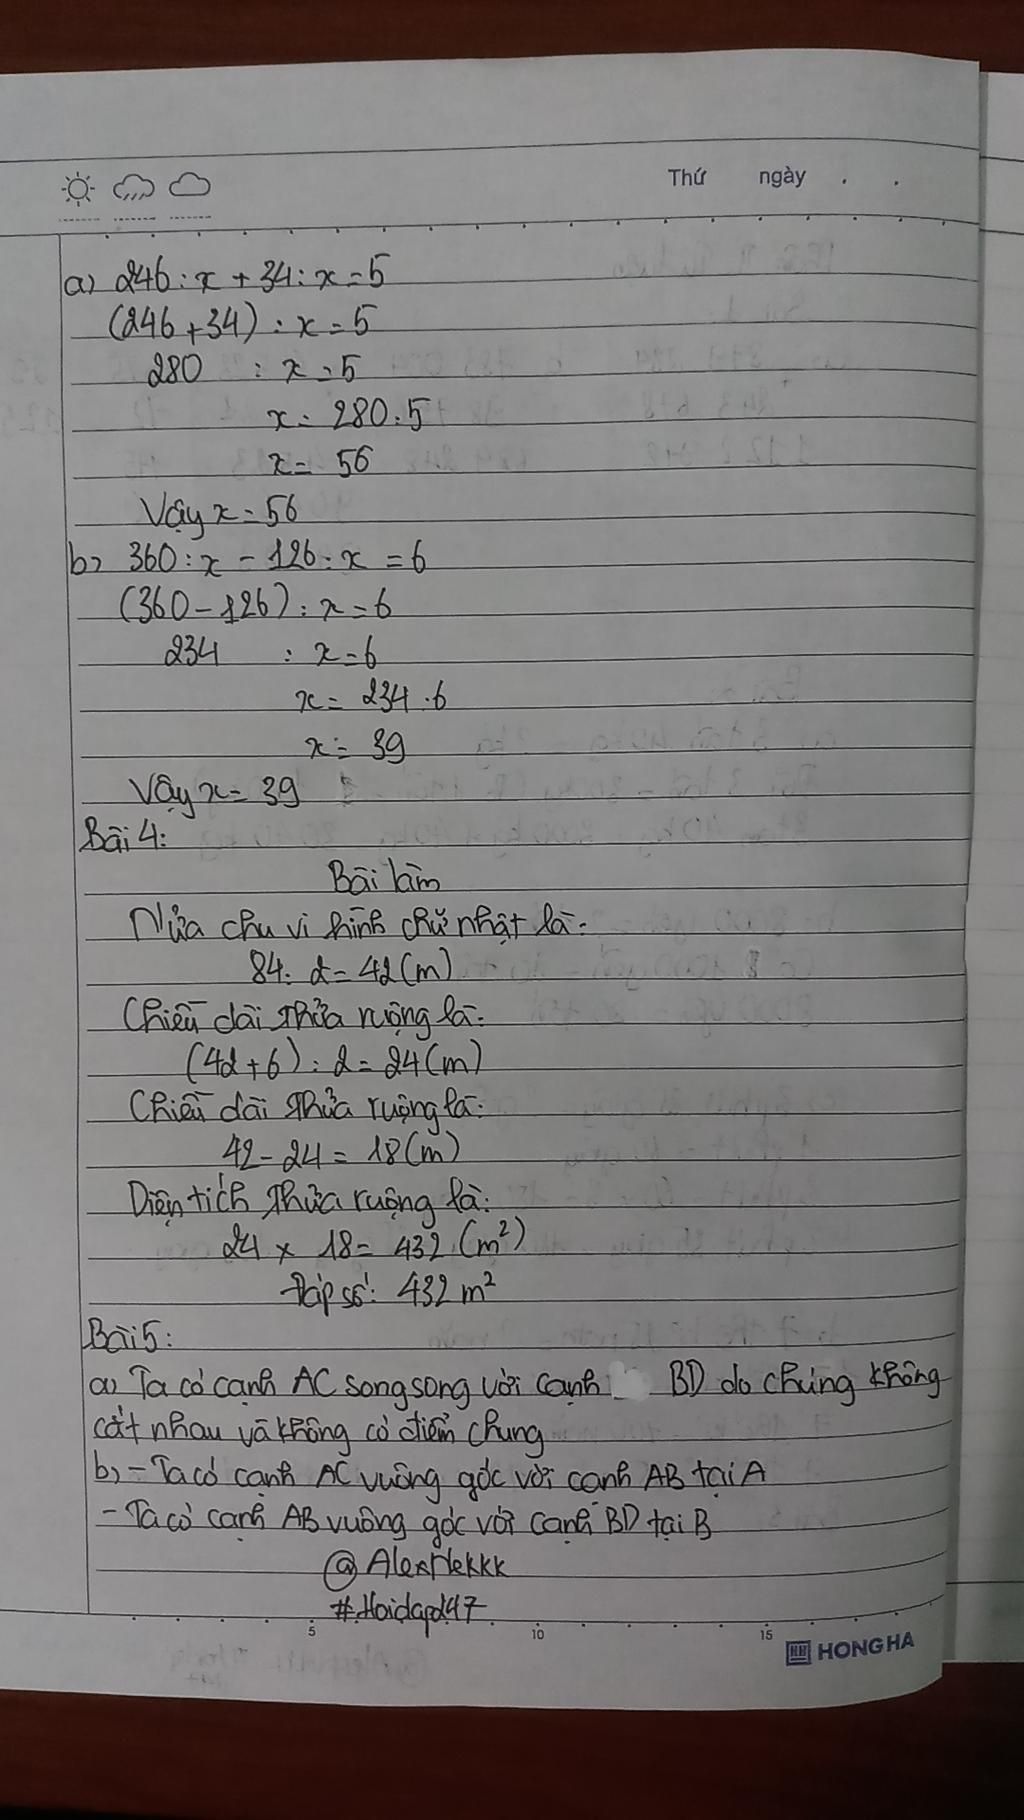 Thứ ngày . .
a) 246 : x + 34 : x = 5
(246 + 34) : x = 5
280 : x = 5
x = 280 : 5
x = 56
Vậy x = 56
b) 360 : x - 126 : x = 6
(360 - 126) : x = 6
234 : x = 6
x = 234 : 6
x = 39
Vậy x = 39
Bài 4:
Bài làm
Nửa chu vi hình chữ nhật là:
84 : 2 = 42 (m)
Chiều dài thửa ruộng là:
(42 + 6) : 2 = 24 (m)
Chiều dài thửa ruộng là:
42 - 24 = 18 (m)
Diện tích thửa ruộng là:
24 x 18 = 432 (m²)
Đáp số: 432 m²
Bài 5:
a) Ta có cạnh AC song song với cạnh BD do chúng không
cắt nhau và không có điểm chung
b) - Ta có cạnh AC vuông góc với cạnh AB tại A
- Ta có cạnh AB vuông góc với cạnh BD tại B
@AlexHekkk
#Hoidap247
5 10 15
HH HONG HA